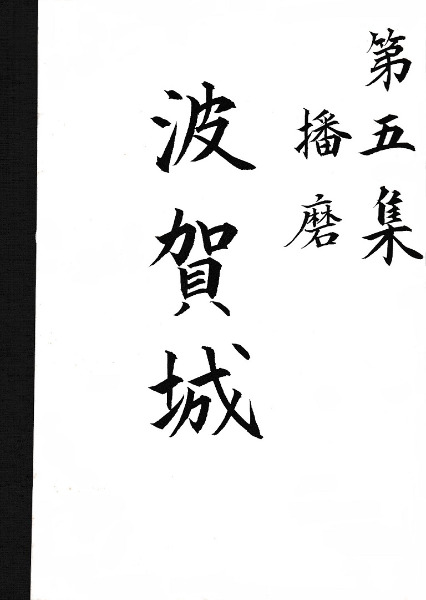 第五集
播磨
波賀城